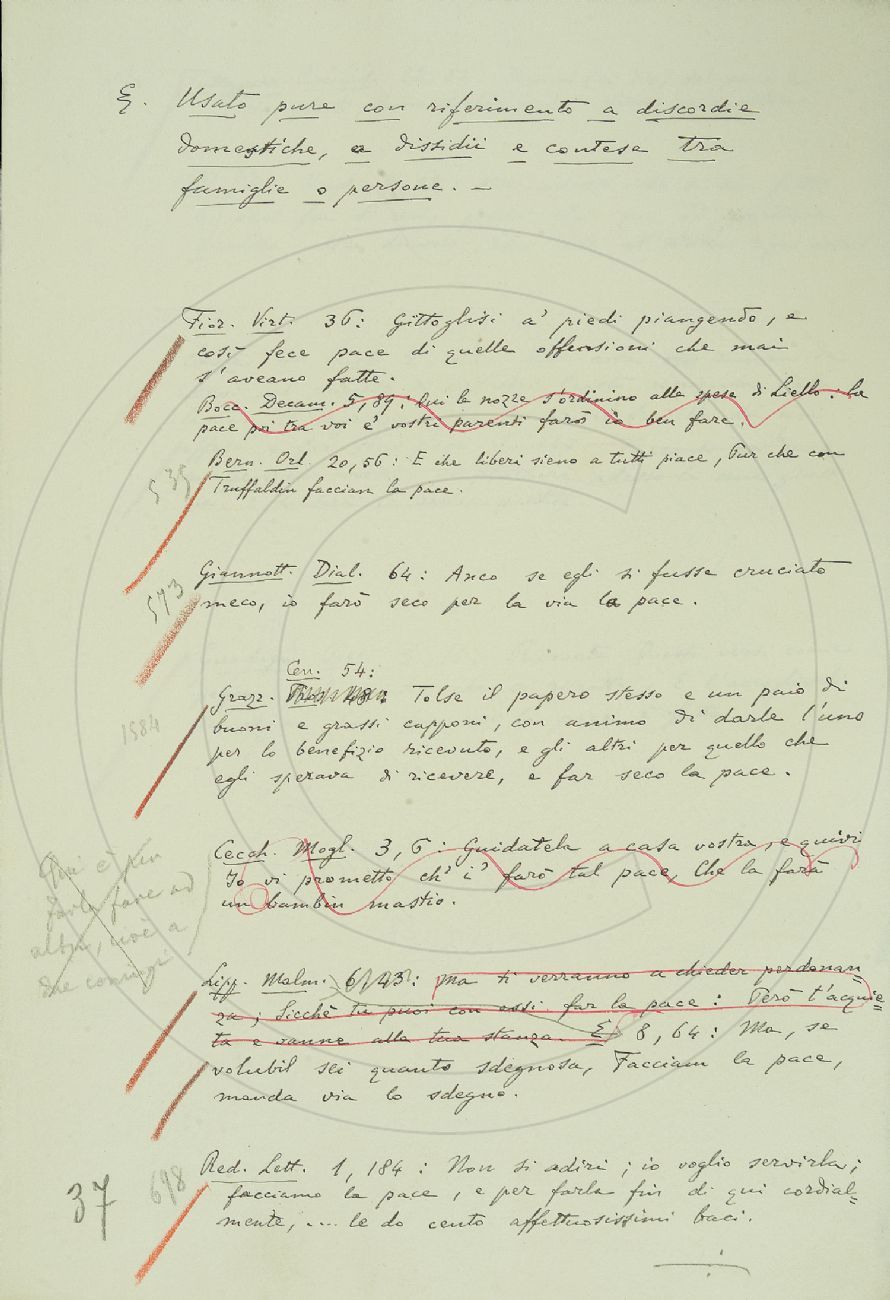 E. Usato pure con riferimento a discordie
domestiche, a dissidii e contese tra
famiglie o persone. —
Fior. Virt. 36: Gittoglisi a' piedi piangendo, e
così fece pace di quelle offensioni che mai
s'aveano fatte.
Bocc. Decam. 5, 89: Qui le nozze s'ordinino alle spese di Liello: la
pace poi tra voi e' vostri parenti farò io ben fare.
Bern. Orl. 20, 56: E che liberi sieno a tutti piace, Pur che con
Truffaldin facciam la pace.
535
Giannott. Dial. 64: Anco se egli si fusse cruciato
meco, io farò seco per la via la pace.
573
Cen. 54:
Grazz. Tolse il papero stesso e un paio di
buoni e grassi capponi, con animo di darle l'uno
per lo benefizio ricevuto, e gli altri per quello che
egli sperava di ricevere, e far seco la pace.
1584
Cecch. Mogl. 3, 6: Guidatela a casa vostra, e quivi
Io vi prometto ch' i' farò tal pace, Che la farà
un bambin mastio.
Qui è per
farla fare ad
altri, cioè a
due coniugi
Lipp. Malm. 6, 43: Ma ti verranno a chieder perdonan-
za; Sicchè tu puoi con essi far la pace: Però t'acquie=
ta e vanne alla tua stanza. E 8, 64: Ma, se
volubil sei quanto sdegnosa, Facciam la pace,
manda via lo sdegno.
Red. Lett. 1, 184: Non si adiri; io voglio servirla;
facciamo la pace, e per farla fin di qui cordial=
mente, .... le do cento affettuosissimi baci.
698
37